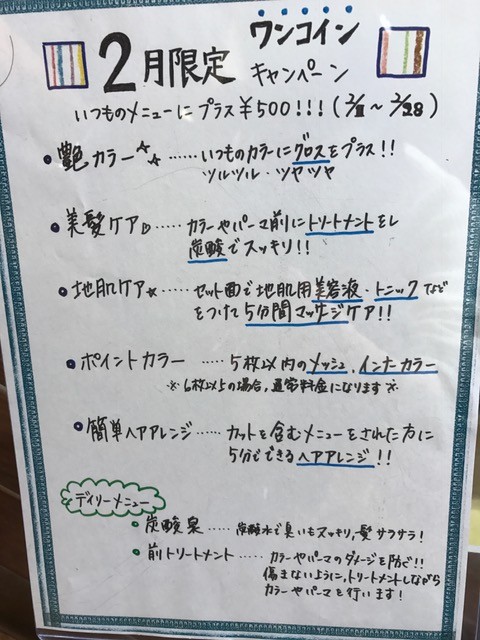 2月限定
ワンコイン
キャンペーン
いつものメニューにプラス¥500!!!(2/1〜2/28)
• 艶カラー☆☆……いつものカラーにグロスをプラス!!
ツルツル・ツヤツヤ
• 美髪ケア……カラーやパーマ前にトリートメントをし
炭酸でスッキリ!!
• 地肌ケア☆……カット前で地肌用美容液・トニック
をつけて5分間マッサージケア!!
• ポイントカラー……5枚以内のメッシュ、インナーカラー
※6枚以上の場合、通常料金になります※
• 簡単ヘアアレンジ……カットを含むメニューをされた方に
5分でできるヘアアレンジ!!
デイリーメニュー
• 炭酸泉……炭酸水で臭いもスッキリ、髪サラサラ!
• 前トリートメント……カラーやパーマのダメージを防ぐ!!
傷まないようにトリートメントしながら
カラーやパーマを行います!